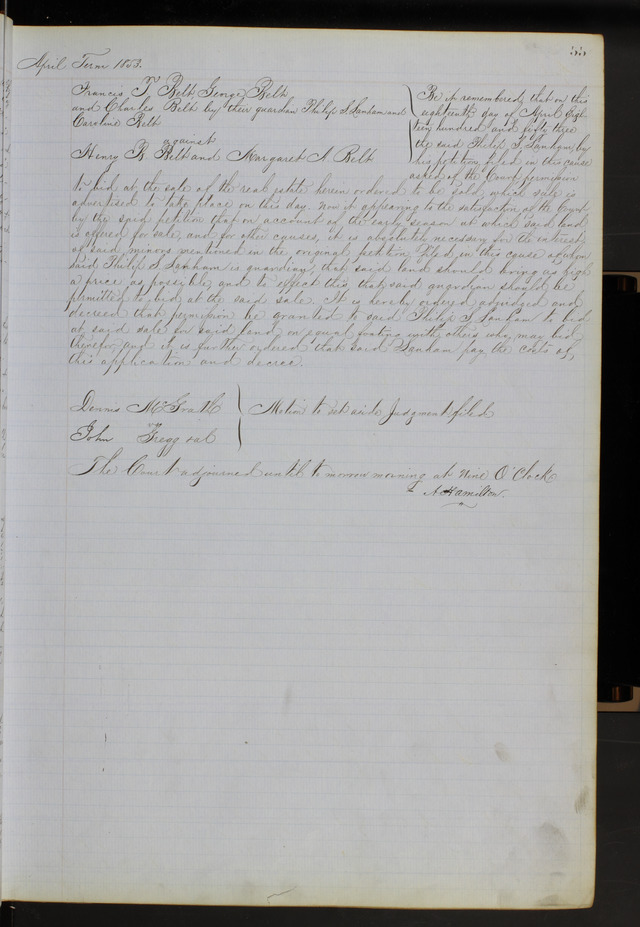 55
April Term 1853.
Francis T. Belt George Belt
and Charles Belt by their guardian Philip S. Lanham and
Caroline Belt
against
Henry B. Belt and Margaret A. Belt
Be it remembered, that on this
eighteenth day of April Eigh-
teen hundred and fifty three
the said Philip S. Lanham, by
his petition, filed in this cause
asked of the Court permission
to bid at the sale of the real estate herein ordered to be sold, which sale is
advertised to take place on this day. Now it appearing to the satisfaction of the Court
by the said petition that on account of the early season at which said land
is offered for sale, and for other causes, it is absolutely necessary for the interest
of said minors mentioned in the original petition filed in this cause of whom
said Philip S. Lanham is guardian, that said land should bring as high
a price as possible, and to effect this that said guardian should be
permitted to bid at the said sale. It is hereby ordered adjudged and
decreed that permission be granted to said Philip S Lanham to bid
at said sale for said land on equal footing with others who may bid
therefor and it is further ordered that said Lanham pay the costs of
this application and decree.
Dennis McGrath
vs
John Gregg et al
Motion to set aside Judgment filed
The Court adjourned until tomorrow morning at Nine O'Clock
A Hamilton.